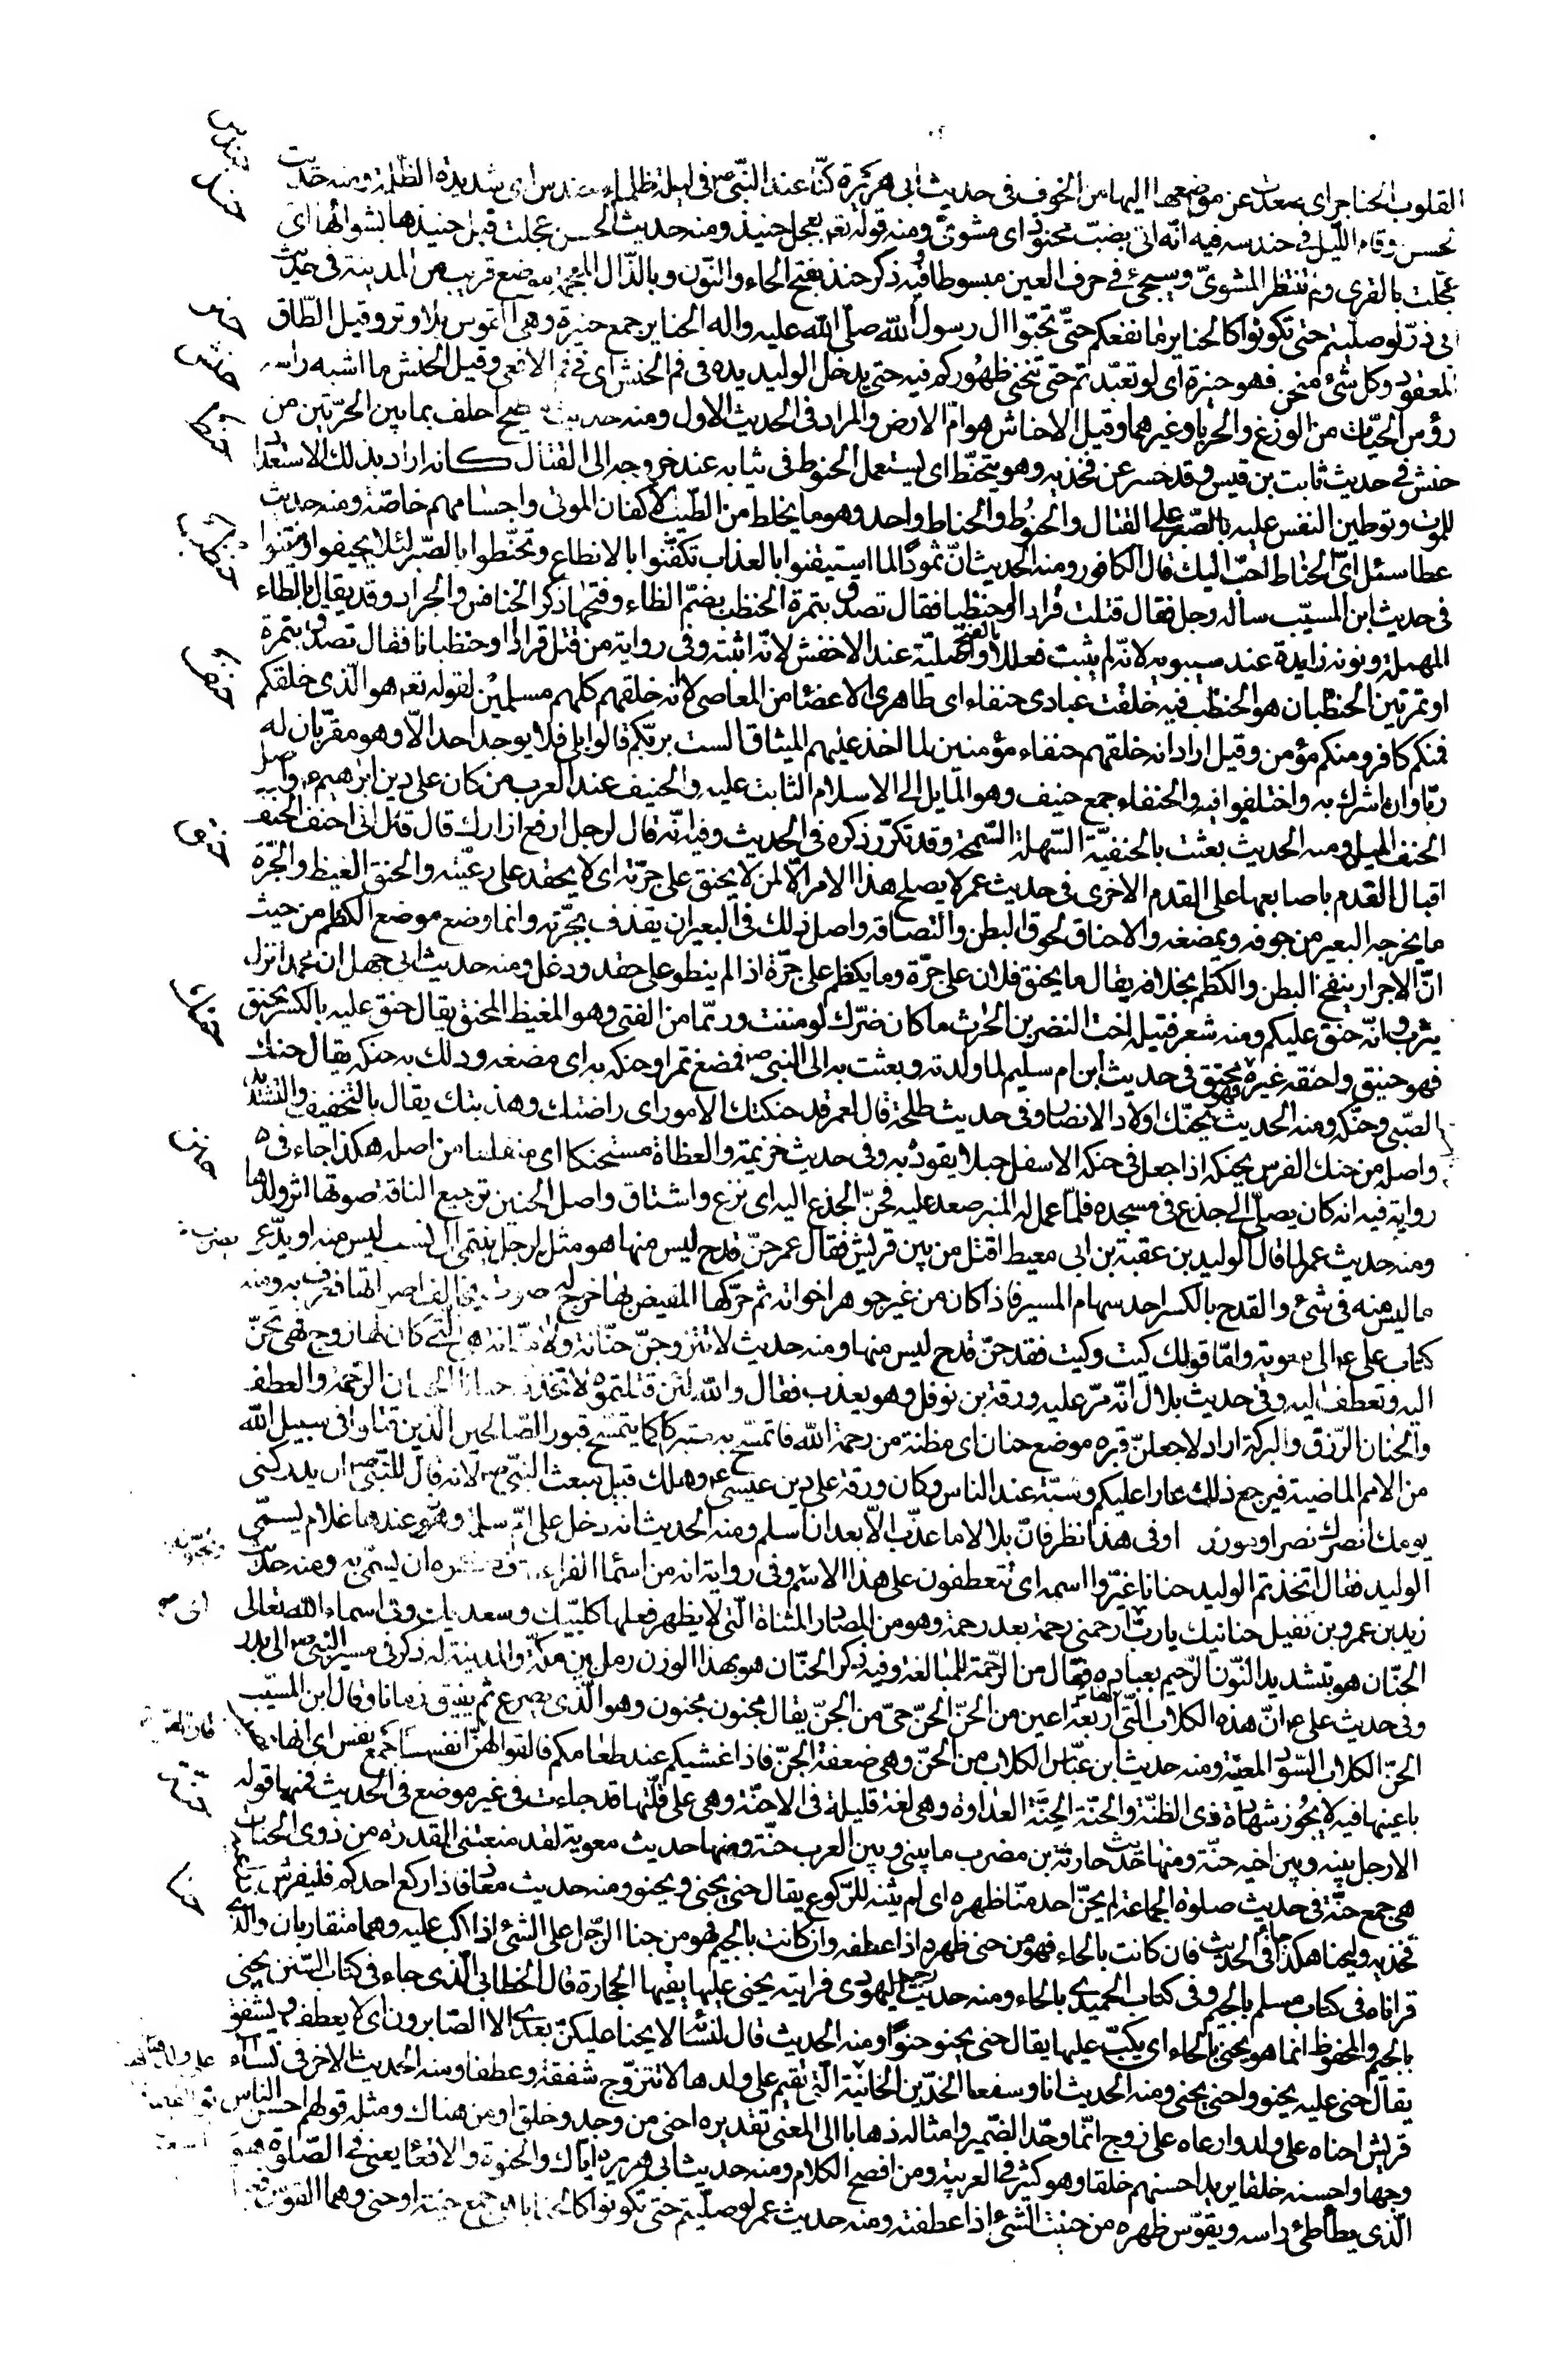 القلوب الحناجر اى صعدت عن موضعها اليها من الخوف فى حديث ابى هريرة كنّا عند النّبىّ ص فى ليلة ظلماء حندس اى شديدة الظّلمة ومنه حديث
الحسن وقام اللّيل فى حندسه فيه انّه اتى بضبّ محنوذ اى مشوىّ ومنه قوله تعم بعجل حنيذ ومنه حديث الحسن عجلت قبل حنيذها بشوائها اى
عجّلت بالقرى ولم تنتظر المشوىّ وسيجىء فى حرف العين مبسوطا وفيه ذكر حنذ بفتح الحاء والنّون وبالذّال المعجمة موضع قريب من المدينة فى حديث
ابى ذرّ لو صليتم حتى تكونوا كالحناير ما نفعكم حتّى تحبّوا ال رسول الله صلّى الله عليه واله الحناير جمع حنيرة وهى القوس بلا وتر وقيل الطّاق
المعقود وكل شىء منحن فهو حنيرة اى لو تعبّدتم حتى تنحنى ظهوركم فيه حتى يدخل الوليد يده فى فم الحنش اى فى فم الافعى وقيل الحنش ما اشبه راسه
رؤس الحيّات من الوزغ والحربا وغيرهما وقيل الاحناش هوامّ الارض والمراد فى الحديث الاول ومنه حديث سطيح احلف بما بين الحرّتين من
حنش فى حديث ثابت بن قيس وقد حسر عن فخذيه وهو يتحنّط اى يستعمل الحنوط فى ثيابه عند خروجه الى القتال كانه اراد بذلك الاستعداد
للموت وتوطين النفس عليه بالصّبر على القتال والحنوط والحناط واحد وهو ما يخلط من الطّيب لاكفان الموتى واجسامهم خاصّة ومنه حديث
عطا سئل اىّ الحناط احبّ اليك قال الكافور ومنه الحديث انّ ثمود لما استيقنوا بالعذاب تكفّنوا بالانطاع وتحنّطوا بالصّبر لئلا يجيفوا وينتنوا
فى حديث ابن المسيّب ساله رجل فقال قتلت قرادا او حنظبا فقال تصدق بتمرة الحنظب بضمّ الظاء وفتحها ذكر الخنافس والجراد وقد يقال بالطاء
المهملة ونونه زايدة عند سيبويه لانّه لم يثبت فعلل بالفتح واصليّة عند الاخفش لانّه اثبته وفى رواية من قتل قرادا او حنظبانا فقال تصدق بتمرة
او تمرتين الحنظبان هو الحنظب فيه خلقت عبادى حنفاء اى طاهرى الاعضا من المعاصى لا انه خلقهم كلهم مسلمين لقوله تعم هو الّذى خلقكم
فمنكم كافر ومنكم مؤمن وقيل اراد انه خلقهم حنفاء مؤمنين لما اخذ عليهم الميثاق الست بربّكم قالوا بلى فلا يوجد احد الّا وهو مقرّ بان له
ربّا وان اشرك به واختلفوا فيه والحنفاء جمع حنيف وهو المّايل الى الاسلام الثابت عليه والحنيف عند العرب من كان على دين ابرهيم ع واصل
الحنف الميل ومنه الحديث بعثت بالحنفيّة السّهلة السّمحة وقد تكرّر ذكره فى الحديث وفيه انّه قال لرجل ارفع ازارك قال قال انى احنف الحنف
اقبال القدم باصابعها على القدم الاخرى فى حديث عمر لا يصلح هذا الامر الّا لمن لا يحنق على جرّته اى لا يحقد على رعيّته والحنق الغيظ والجرّة
ما يخرجه البعير من جوفه ويمضغه والاحناق لحوق البطن والتصاقه واصل ذلك فى البعير ان يقذف بجرّته وانما وضع موضع الكظم من حيث
انّ الاجرار ينفخ البطن والكظم بخلافه يقال ما يحنق فلان على جرّة وما يكظم على جرّة اذا لم ينطو على حقد ودغل ومنه حديث ابى جهل ان محمدا نزل
يثرب وانّه حنق عليكم ومنه شعر قتيلة اخت النضر بن الحرث ما كان ضرّك لو مننت وربّما من الفتى وهو المغيظ المحنق يقال حنق عليه بالكسر يحنق
فهو حنيق واحنقه غيره فهو محنق فى حديث ابن ام سليم لما ولدته وبعثت به الى النبى ص فمضغ تمرا وحنكه به اى مضغه ودلك به حنكه يقال حنك
الصّبى وحنّكه ومنه الحديث يحنّك اولاد الانصار وفى حديث طلحة قال لعمر قد حنكتك الامور اى راضتك وهذبتك يقال بالتخفيف والتشديد
واصله من حنك الفرس يحنكه اذا جعل فى حنكه الاسفل حبلا يقوده به وفى حديث خزيمة والعظاة مستحنكا اى منقلعا من اصله هكذا جاء فى
رواية فيه انه كان يصلّى الى جذع فى مسجده فلمّا عمل له المنبر صعد عليه فحنّ الجذع اليه اى نزع واشتاق واصل الحنين ترجيع الناقة صوتها اثر ولدها
ومنه حديث عمر لما قال الوليد بن عقبة بن ابى معيط اقتل من بين قريش فقال عمر حنّ قدح ليس منها هو مثل لرجل ينتمى الى نسب ليس منه او يدّعى
ما ليس منه فى شىء والقدح بالكسر احد سهام الميسر فاذا كان من غير جوهر اخواته ثم حرّكها المفيض بها خرج له صوت يخالف اصواتها فعرف به ومنه
كتاب على ع الى معوية وامّا قولك كيت وكيت فقد حنّ قدح ليس منها ومنه حديث لا تتزوجنّ حنّانة ولا منّانة هى الّتى كان لها زوج فهى تحنّ
اليه وتعطف اليه وفى حديث بلال انّه مرّ عليه ورقة بن نوفل وهو يعذب فقال والله لئن قتلتموه لاتّخذنه حنانا الحنان الرّحمة والعطف
والحنان الرّزق والبركة اراد لاجعلنّ قبره موضع حنان اى مظنة من رحمة الله فاتمسّح به متبركا كما يتمسّح قبور الصّالحين الّذين قتلوا فى سبيل الله
من الامم الماضية فيرجع ذلك عارا عليكم وسبّة عند الناس وكان ورقة على دين عيسى ع وهلك قبيل مبعث النّبى ص لانه قال للنّبى ص ان يدركنى
يومك لانصرنّك نصرا موزرا وفى هذا نظر فانّ بلالا ما عذّب الّا بعد ان اسلم ومنه الحديث انه دخل على امّ سلمة وعندها غلام يسمّى
الوليد فقال اتّخذتم الوليد حنانا غيّروا اسمه اى تتعطفون على هذا الاسم وفى رواية انه من اسما الفراعنة فكره ان يسمّى به ومنه حديث
زيد بن عمرو بن نفيل حنانيك يا ربّ ارحمنى رحمة بعد رحمة وهو من المصادر المثناة الّتى لا يظهر فعلها كلبّيك وسعديك وفى اسماء الله تعالى
الحنّان هو بتشديد النّون الرّحيم بعباده فعّال من الرّحمة للمبالغة وفيه ذكر الحنّان هو بهذا الوزن رمل بين مكّة والمدينة له ذكر فى مسير النّبى ص الى بدر
وفى حديث على ع انّ هذه الكلاب الّتى لها اربعة اعين من الحنّ الحنّ حىّ من الجنّ يقال مجنون محنون وهو الّذى يصرع ثم يفيق زمانا وقال ابن المسيّب
الحنّ الكلاب السّود المعينة ومنه حديث ابن عبّاس الكلاب من الحنّ وهى ضعفة الجنّ فاذا غشيكم عند طعامكم فالقوا لهنّ فانّ لهنّ انفسا جمع نفس اى انها تصيب
باعينها فيه لا يجوز شهادة ذى الظنّة والحنّة الحِنّة العداوة وهى لغة قليلة فى الاحنّة وهى على قلّتها قد جاءت فى غير موضع فى الحديث فمنها قوله
الا رجل بينه وبين اخيه حنّة ومنها حديث حارثة بن مضرب ما بينى وبين العرب حنّة ومنها حديث معوية لقد منعتنى القدرة من ذوى الحنات
هى جمع حنّة فى حديث صلوة الجماعة لم يحنّ احد منّا ظهره اى لم يثنه للرّكوع يقال حنى يحنى ويحنو ومنه حديث معاذ فاذا ركع احدكم فليفرش ذراعيه
فخذيه وليحنا هكذا جاء فى الحديث فان كانت بالحاء فهو من حنى ظهره اذا عطفه وان كانت بالجيم فهو من جنا الرّجل على الشىء اذا اكبّ عليه وهما متقاربان والذى
قراناه فى كتاب مسلم بالجيم وفى كتاب الحميدى بالحاء ومنه حديث رجم اليهودى فرايته يحنى عليها يقيها الحجارة قال الخطابى الّذى جاء فى كتاب السّنن يجنى
بالجيم والمحفوظ انما هو يحنى بالحاء اى يكبّ عليها يقال حنى يحنو حنوّا ومنه الحديث قال لنسائه لا يحنا عليكنّ بعدى الا الصّابرون اى لا يعطف ويشفق
يقال حنى عليه يحنو واحنى يحنى ومنه الحديث انا وسفعا الخدّين الحانية الّتى تقيم على ولدها لا تتزوّج شفقة وعطفا ومنه الحديث الاخر فى نساء
قريش احناه على ولد وارعاه على زوج انّما وحّد الضّمير وامثاله ذهابا الى المعنى تقديره احنى من وجد وخلق او من هناك ومثله قولهم احسن الناس
وجها واحسنه خلقا يريد احسنهم خلقا وهو كثير فى العربية ومن افصح الكلام ومنه حديث ابى هريره ايّاك والحنوة والاقعا يعنى فى الصّلوة هو
الّذى يطاطى راسه ويقوّس ظهره من حنيت الشّىء اذا عطفته ومنه حديث عمر لو صلّيتم حتى تكونوا كالحنايا هى جمع حنيّة او حنى وهما القوس